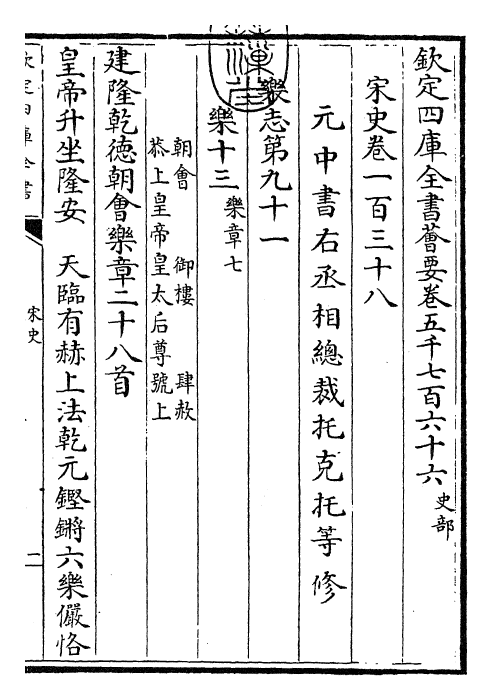 欽定四庫全書薈要卷五千七百六十六 史部
宋史卷一百三十八
元中書右丞相總裁托克托等修
樂志第九十一
樂十三 樂章七
朝會 御樓 肆赦
恭上皇帝皇太后尊號上
建隆乾德朝會樂章二十八首
皇帝升坐隆安 天臨有赫上法乾元鏗鏘六樂儼恪
欽定四庫全書
宋史